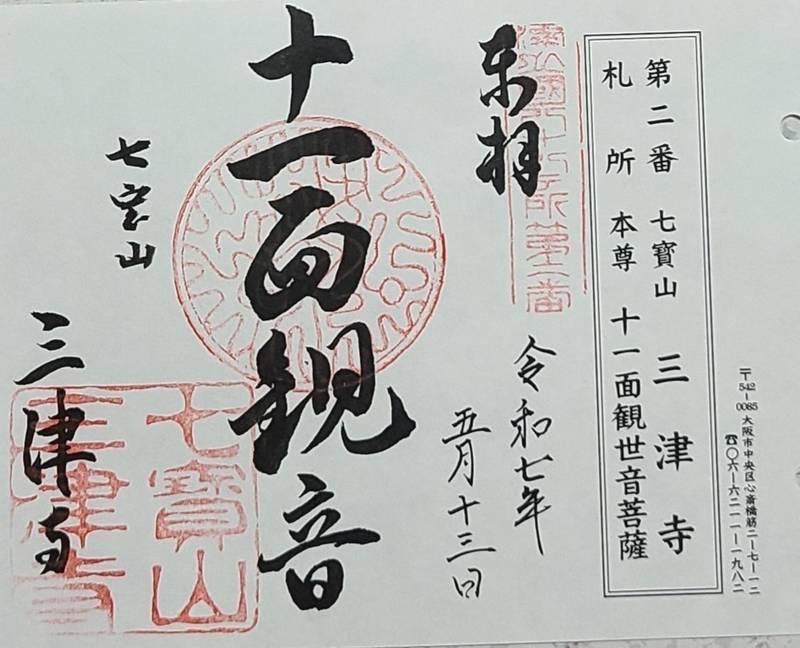 〒542-0085 大阪市中央区心斎橋筋二-七-一二
☎〇六-六二一一-一九八二
第二番 七寶山 三津寺
札所 本尊 十一面観世音菩薩
奉拝
令和七年
五月十三日
十一面観音
七宝山
三津寺
七寶山
三津寺